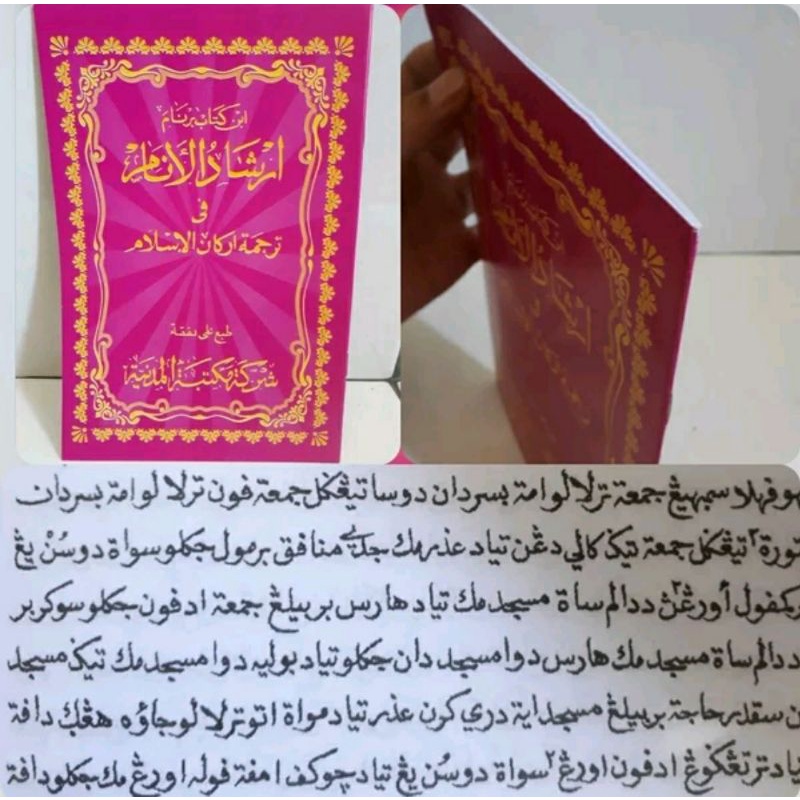 اين كتاب برنام
ارشاد الأنام
فى
ترجمة اركان الاسلام
طبع على نفقة
شركة مكتبة المدنية
سمبهيڠ جمعة ترلالو امة بسر دان دوسا تيڠڬل جمعة فون ترلالو امة بسر دان
تورة٢ تيڠڬل جمعة تيڬ كالي دڠن تياد عذر مك جادي منافق برمول جكلو سواة دوسُن يڠ
بركمفول أورڠ٢ن ددالم ساة مسجد مك تياد هارس بربيلڠ جمعة ادفون جكلو سوكر بر
ددالم ساة مسجد مك هارس دوا مسجد دان جكلو تياد بوليه دوا مسجد مك تيڬ مسجد
ن سقدر حاجة بربيلڠ مسجد اية دري كرن عذر تياد مواة اتو ترلالو جاؤه هڠڬ دافة
ياد ترتڠڬوڠ ادفون اورڠ٢ سواة دوسُن يڠ تياد چوكف امفة فوله اورڠ مك جكلو دافة